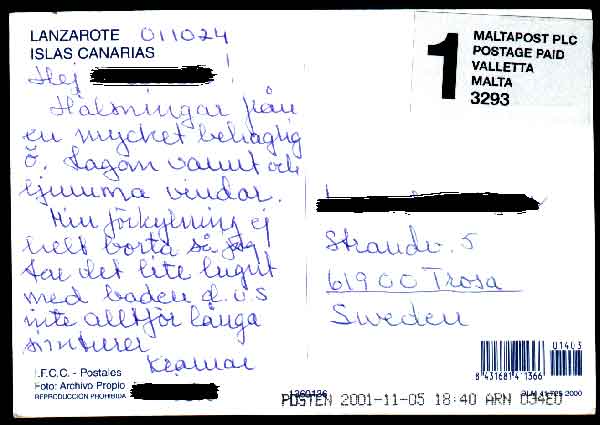 LANZAROTE 011024
ISLAS CANARIAS
Hej !
Hälsningar från
en mycket behaglig
ö. Lagom varmt och
ljumma vindar.
Min förkylning ej
helt borta så jag
tar det lite lugnt
med baden d.v.s
inte alltför långa
simturer
Kramar
I.F.C.C. - Postales
Foto: Archivo Propio
REPRODUCCION PROHIBIDA
1
MALTAPOST PLC
POSTAGE PAID
VALLETTA
MALTA
3293
Strandv. 5
61900 Trosa
Sweden
01403
8 431681 41366
POSTEN 2001-11-05 18:40 ARN